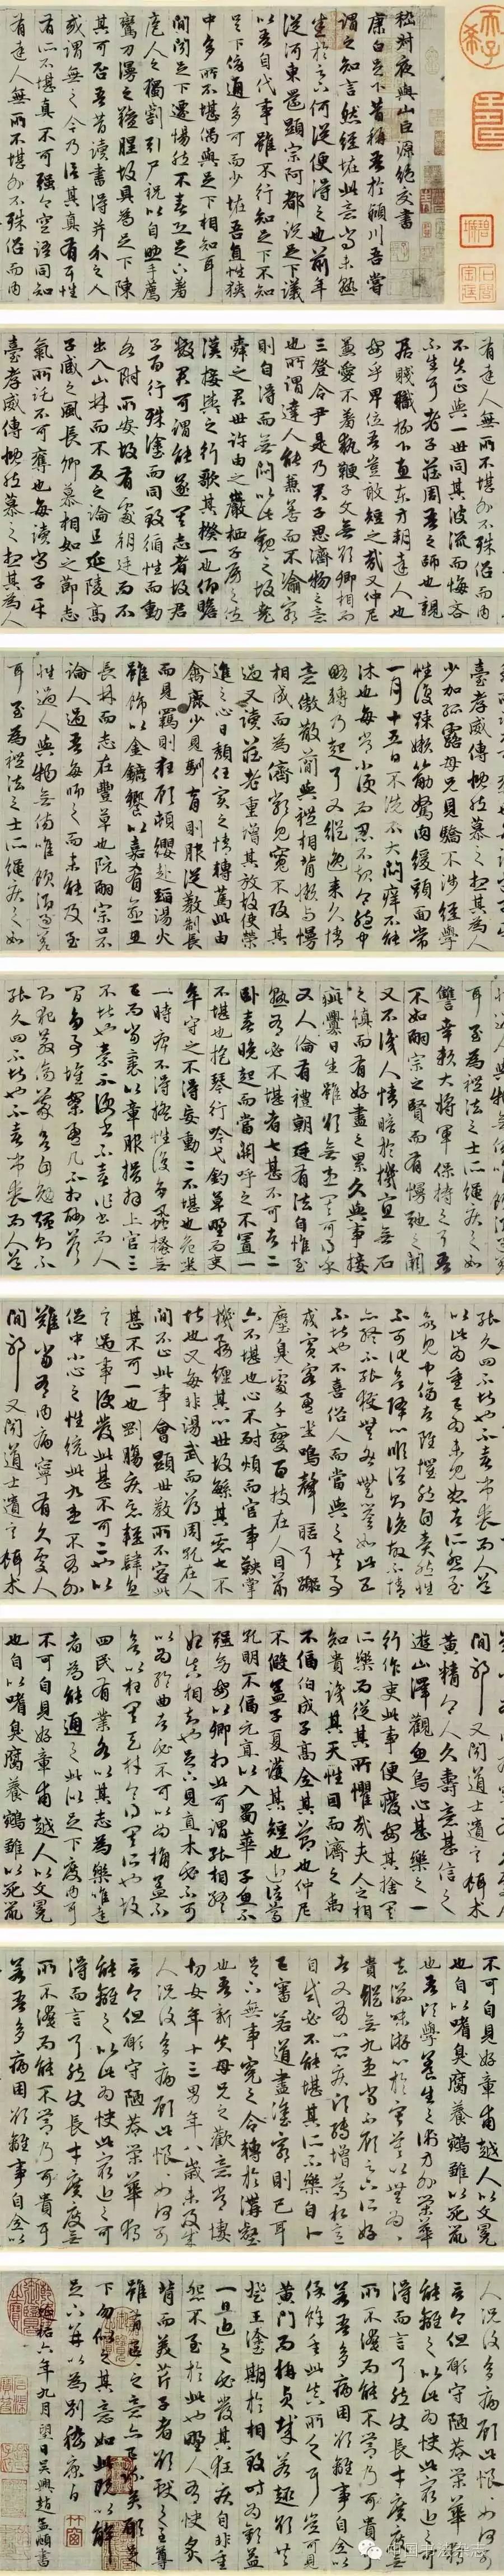 嵇叔夜與山巨源絕交書
康白足下昔稱吾於潁川吾嘗
謂之知言然經怪此意尚未熟
悉於足下何從便得之也前年
從河東還顯宗阿都說足下議
以吾自代事雖不行知足下不知
之足下傍通多可而少怪吾直性狹
中多所不堪偶與足下相知耳
間聞足下遷惕然不喜恐足下羞
庖人之獨割引尸祝以自助手薦
鸞刀漫之羶腥故具為足下陳
其可否吾昔讀書得并介之人
或謂無之今乃信其真有耳性
有所不堪真不可強今空語同知
有達人無所不堪外不殊俗而內
有達人無所不堪外不殊俗而內
不失正與一世同其波流而悔吝
不生耳老子莊周吾之師也親
居賤職柳下惠東方朔達人也
安乎卑位吾豈敢短之哉又仲尼
兼愛不羞執鞭子文無欲卿相而
三登令尹是乃君子思濟物之意
也所謂達人能兼善而不渝窮
則自得而無悶以此觀之故堯
舜之君世許由之巖栖子房之佐
漢接輿之行歌其揆一也仰瞻
數君可謂能遂其志者故君
子百行殊塗而同致循性而動
各附所安故有處朝廷而不
出入山林而不反之論且延陵高
子臧之風長卿慕相如之節志
氣所託不可奪也每讀尚子平
臺孝威傳慨然慕之想其為人
臺孝威傳慨然慕之想其為人
少加孤露母兄見驕不涉經學
性復疎嬾筋駑肉緩頭面常
一月十五日不洗不大悶癢不能
沐也每常小便而忍不起令胞中
略轉乃起耳又縱逸來久情
意傲散簡與禮相背嬾與慢
相成而為儕類見寬不攻其
過又讀莊老重增其放故使榮
進之心日頹任實之情轉篤此由
禽鹿少見馴育則服從教制長
而見羈則狂顧頓纓赴蹈湯火
雖飾以金鑣饗以嘉肴愈思
長林而志在豐草也阮嗣宗口不
論人過吾每師之而未能及至
性過人與物無傷唯飲酒過差
耳至為禮法之士所繩疾之如
耳至為禮法之士所繩疾之如
讎幸賴大將軍保持之耳吾
不如嗣宗之賢而有慢弛之闕
又不識人情暗於機宜無石
之慎而有好盡之累久與事接
疵釁日生雖欲無患其可得乎
又人倫有禮朝廷有法自惟至
熟有必不堪者七甚不可者二
臥喜晚起而當關呼之不置一
不堪也抱琴行吟弋釣草野而吏
卒守之不得妄動二不堪也危坐
一時痺不得搖性復多虱搔無
已而當裹以章服揖拜上官三
不堪也素不便書不喜作書而人
間多事堆案盈几不相酬答
則犯教傷義欲自勉強則不
能久四不堪也不喜弔喪而人道
能久四不堪也不喜弔喪而人道
以此為重已為未見恕者所怨至
欲見中傷者雖懼然自責然性
不可化欲降心順俗則詭故不情
亦終不能獲無咎無譽如此五
不堪也不喜俗人而當與之共事
或賓客盈坐鳴聲聒耳囂
塵臭處千變百伎在人目前
六不堪也心不耐煩而官事鞅掌
機務纏其心世故繁其慮七不
堪也又每非湯武而薄周孔在人
間不止此事會顯世教所不容此
甚不可一也剛腸疾惡輕肆直
言遇事便發此甚不可二也以
促中小心之性統此九患不有外
難當有內病寧可久處人
間邪又聞道士遺言餌朮
間邪又聞道士遺言餌朮
黃精令人久壽意甚信之
遊山澤觀魚鳥心甚樂之一
行作吏此事便廢安能舍其
所樂而從其所懼哉夫人之相
知貴識其天性因而濟之禹
不偪伯成子高全其節也仲尼
不假蓋子夏護其短也近諸葛
孔明不偪元直以入蜀華子魚不
強幼安以卿相此可謂能相終
始真相知也足下見直木必不可
以為輪曲者必不可以為桷蓋不
欲以枉其天材令得其所也故
四民有業各以其志為樂唯達
者為能通之此似足下度內耳
不可自見好章甫越人以文冕
也自以嗜臭腐養鵷雛以死鼠
不可自見好章甫越人以文冕
也自以嗜臭腐養鵷雛以死鼠
也吾頃學養生之術方外榮華
去滋味游心於寂寞以無為
貴縱無九患尚不顧足下所好
者又有心悶疾頃轉增篤私意
自試必不能堪其所不樂自卜
已審若道盡塗窮則已耳
足下無事冤之令轉於溝壑
也吾新失母兄之歡意常悽
切女年十三男年八歲未及成
人況復多病顧此恨恨如何可
言今但願守陋巷榮華獨
能離之以此為快此最近之可
得而言耳然使長才廣度無
所不淹而能不營乃可貴耳
若吾多病困欲離事自全以
人況復多病顧此恨恨如何可
言今但願守陋巷榮華獨
能離之以此為快此最近之可
得而言耳然使長才廣度無
所不淹而能不營乃可貴耳
若吾多病困欲離事自全以
保餘年此真所乏耳豈可見
黃門而稱貞哉若趣欲共
登王塗期於相致時為歡益
一旦迫之必發其狂疾自非重
怨不至於此也野人有快炙
背而美芹子者欲獻之至尊
雖有區區之意亦已疎矣願足
下勿似之其意如此既以解
足下并以為別嵇康白
延祐六年九月望日吳興趙孟頫書
中国书法杂志